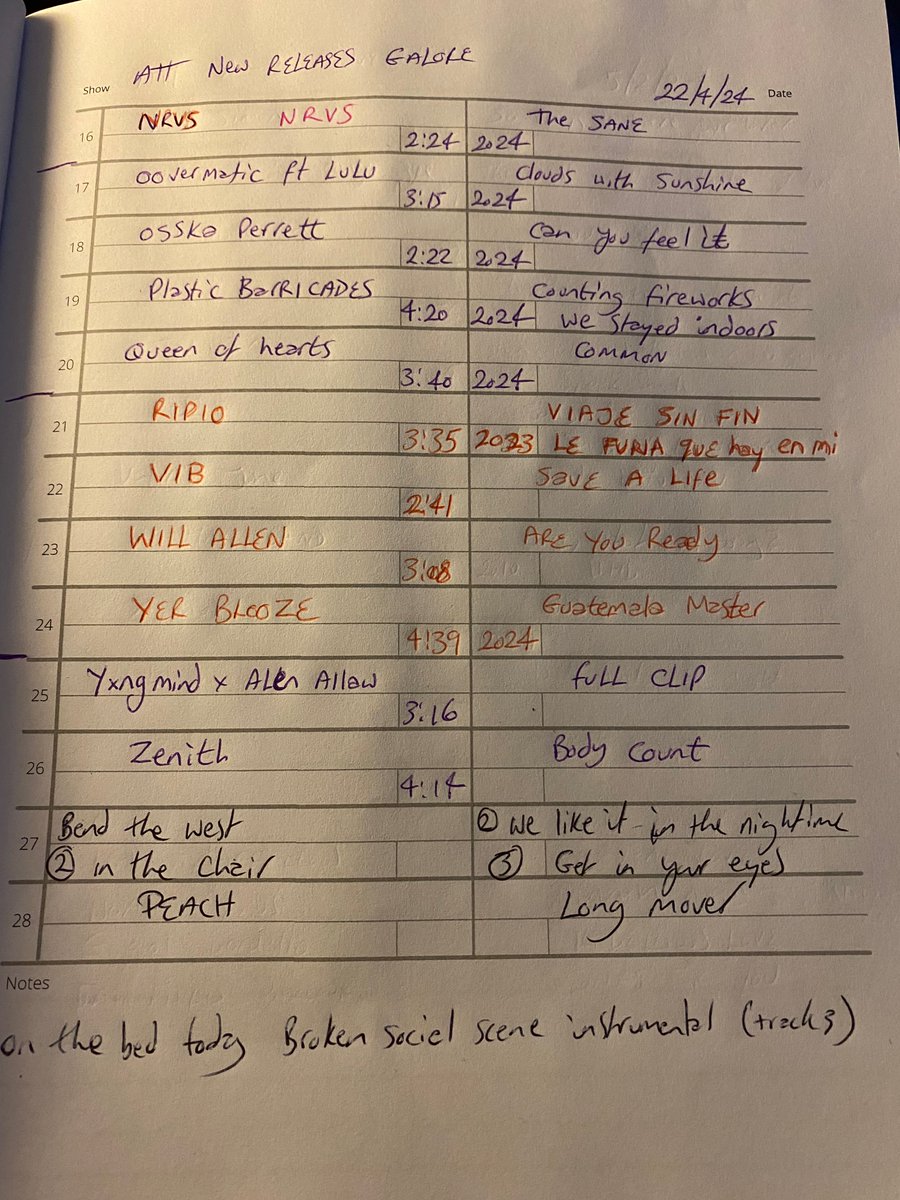 Show ATT New RELEASES GALORE 22/4/24 Date
16 NRVS NRVS The SANE
2:24 2024
17 oovermatic ft LuLu Clouds with Sunshine
3:15 2024
18 OSSKa Perrett Can you feel it
2:22 2024
19 Plastic BarRICADES Counting fireworks
4:20 2024 we stayed indoors
20 Queen of hearts Common
3:40 2024
21 RIPIO VIAJE SIN FIN
3:35 2023 LE FURIA QUE hay en mi
22 VIB SavE A LIfe
2:41
23 WILL ALLEN ARE You Ready
3:08
24 YER BLOOZE Guatemala Master
4:39 2024
25 Yxng mind x ALEn Allaw fULL CLIP
3:16
26 Zenith Body Count
4:14
27 Bend the west ② we like it in the nightime
② in the Chair ③ Get in your eyes
28 PEACH Long mover
Notes
on the bed today Broken social scene instrumental (track 3)